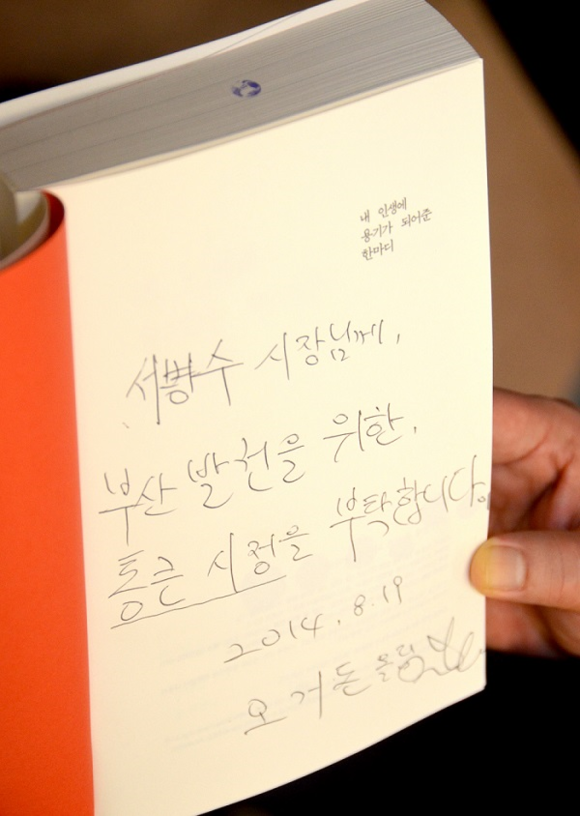 내 인생에
용기가 되어준
한마디
서병수 시장님께,
부산 발전을 위한,
통큰 시정을 부탁합니다.
2014. 8. 19
오거돈 올림